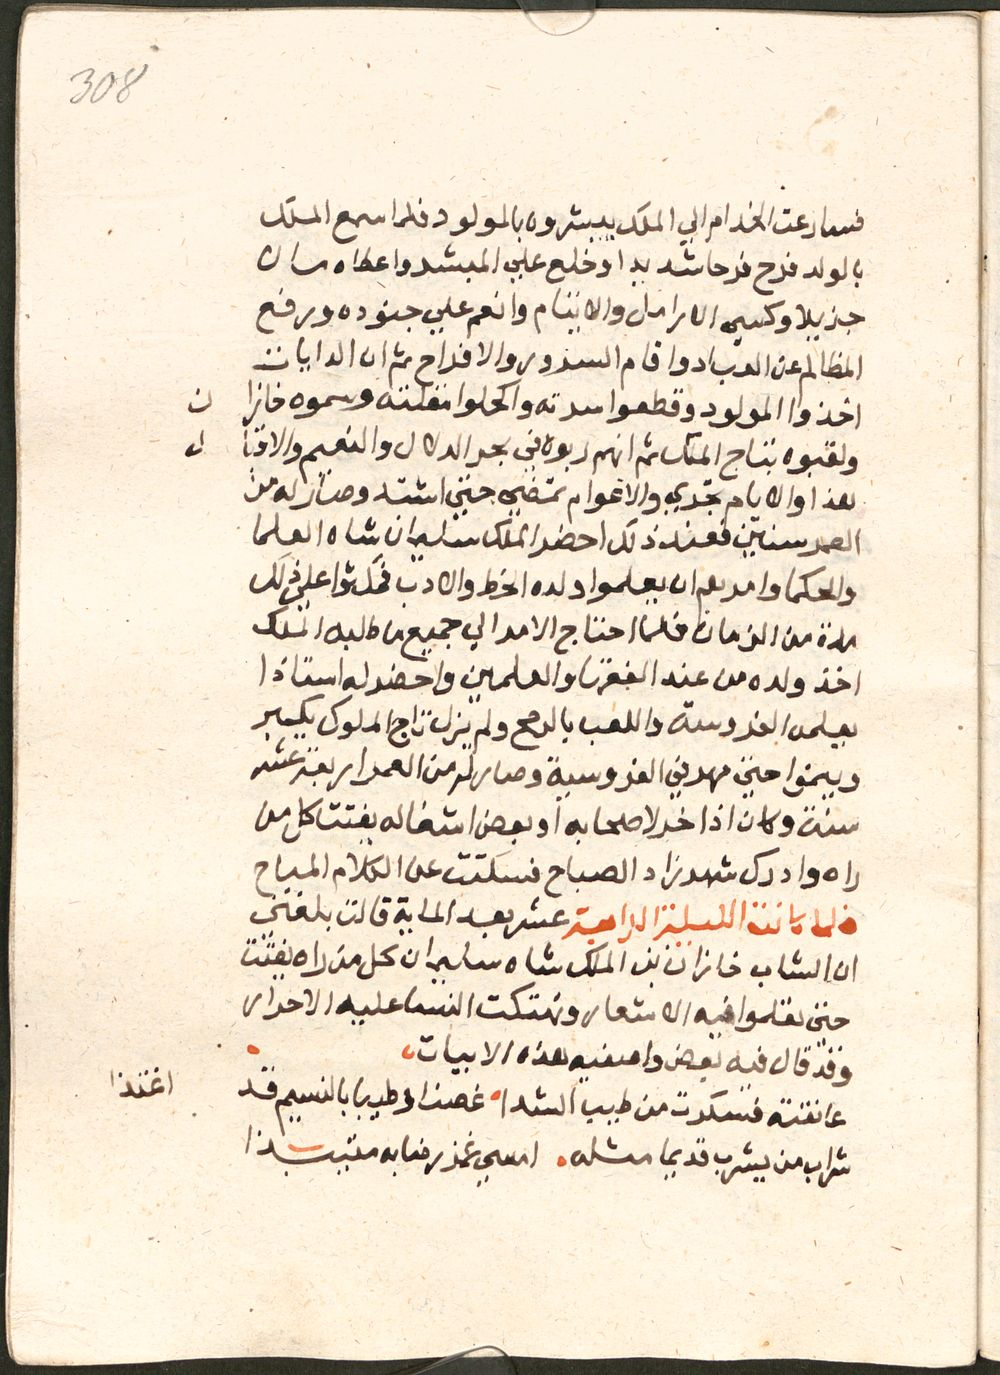 308
فسارعت الخدام الي الملك يبشروه بالمولود فلما سمع الملك
بالولد فرح فرحا شديدا وخلع علي المبشر واعطاه مالا
جزيلا وكسي الارامل والايتام وانعم علي جنوده ورفع
المظالم عن العباد واقام السرور والافراح ثم ان الدايات
اخذوا المولود وقطعوا سرته واكحلوا مقلته وسموه خازا ن
ولقبوه بتاج الملك ثم انهم ربوه في بحر الدلال والنعيم والاقبا ل
هذا والايام تجري والاعوام تمضي حتي اشتد وصار له من
العمر سنتين فعند ذلك احضر الملك سليمان شاه العلما
والحكما وامرهم ان يعلموا ولده الخط والادب فمكثوا علي ذلك
مدة من الزمان فلما احتاج الامر الي جميع ما طلبه الملك
اخذ ولده من عند الفقها والمعلمين واحضر له استاذا
يعلمه الفروسية واللعب بالرمح ولم يزل تاج الملوك يكبر
وينموا حتي مهر في الفروسية وصار له من العمر اربعة عشر
سنة وكان اذا خرج لاصحابه او بعض اشغاله يفتتن كل من
راه وادرك شهرزاد الصباح فسكتت عن الكلام المباح
فلما كانت الليلة الرابعة عشر بعد الماية قالت بلغني
ان الشاب خازان بن الملك شاه سليمان كل من راه يفتتن
حتي نظموا فيه الاشعار وتهتكت النسا عليه الاحرار
وقد قال فيه بعض واصفيه هذه الابيات
عانقته فسكرت من طيب الشدا غصنا رطيبا بالنسيم قد اغتذا
شراب من يشرب قديما مثله امسي بخمر رضابه متنبذا